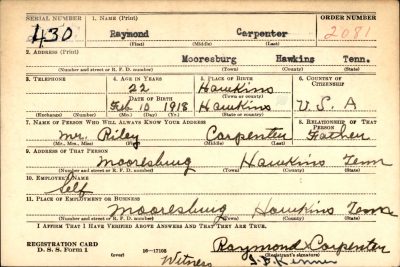 SERIAL NUMBER 1. NAME (Print) ORDER NUMBER
430 Raymond Carpenter 2081
(First) (Middle) (Last)
2. ADDRESS (Print)
Mooresburg Hawkins Tenn.
(Number and street or R. F. D. number) (Town) (County) (State)
3. TELEPHONE 4. AGE IN YEARS 5. PLACE OF BIRTH 6. COUNTRY OF CITIZENSHIP
22 Hawkins
(Town or county)
DATE OF BIRTH
Feb 10 1918 Hawkins U.S.A
(Exchange) (Number) (Mo.) (Day) (Yr.) (State or country)
7. NAME OF PERSON WHO WILL ALWAYS KNOW YOUR ADDRESS 8. RELATIONSHIP OF THAT PERSON
Mr. Riley Carpenter Father
(Mr., Mrs., Miss) (First) (Middle) (Last)
9. ADDRESS OF THAT PERSON
Mooresburg Hawkins Tenn
(Number and street or R. F. D. number) (Town) (County) (State)
10. EMPLOYER'S NAME
Self
11. PLACE OF EMPLOYMENT OR BUSINESS
Mooresburg Hawkins Tenn
(Number and street or R. F. D. number) (Town) (County) (State)
I AFFIRM THAT I HAVE VERIFIED ABOVE ANSWERS AND THAT THEY ARE TRUE.
REGISTRATION CARD
D. S. S. Form 1 (over) 16—17105 Raymond Carpenter
(Registrant's signature)
Witness